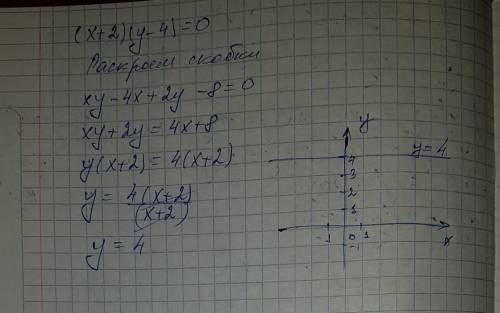 (x+2)(y-4)=0
Раскроем скобки
xy-4x+2y-8=0
xy+2y=4x+8
y(x+2)=4(x+2)
y=4(x+2)/(x+2)
y=4
y
y=4
4
3
2
1
-1 0 1 x
-1